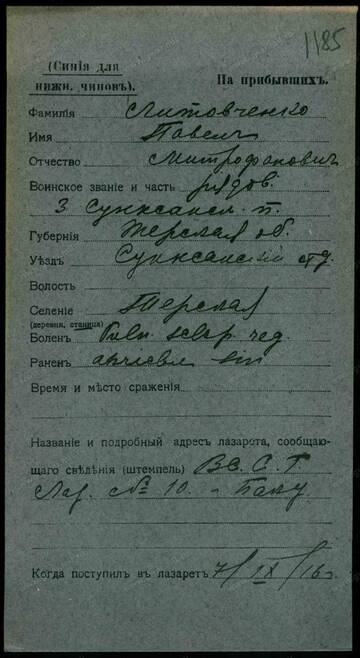 1185
(Синія для
нижн. чиновъ).
На прибывшихъ.
Фамилія Литовченко
Имя Павелъ
Отчество Митрофановичъ
Воинское званіе и часть рядов.
3 п.
Губернія Терская об.
Уѣздъ Сунженскій отд.
Волость
Селеніе Терская
(деревня, станица)
Боленъ
Раненъ
Время и мѣсто сраженія
Названіе и подробный адресъ лазарета, сообщаю-
щаго свѣдѣнія (штемпель) В. С. Г.
Лаз. № 10. Баку
Когда поступилъ въ лазаретъ 7/IX/16